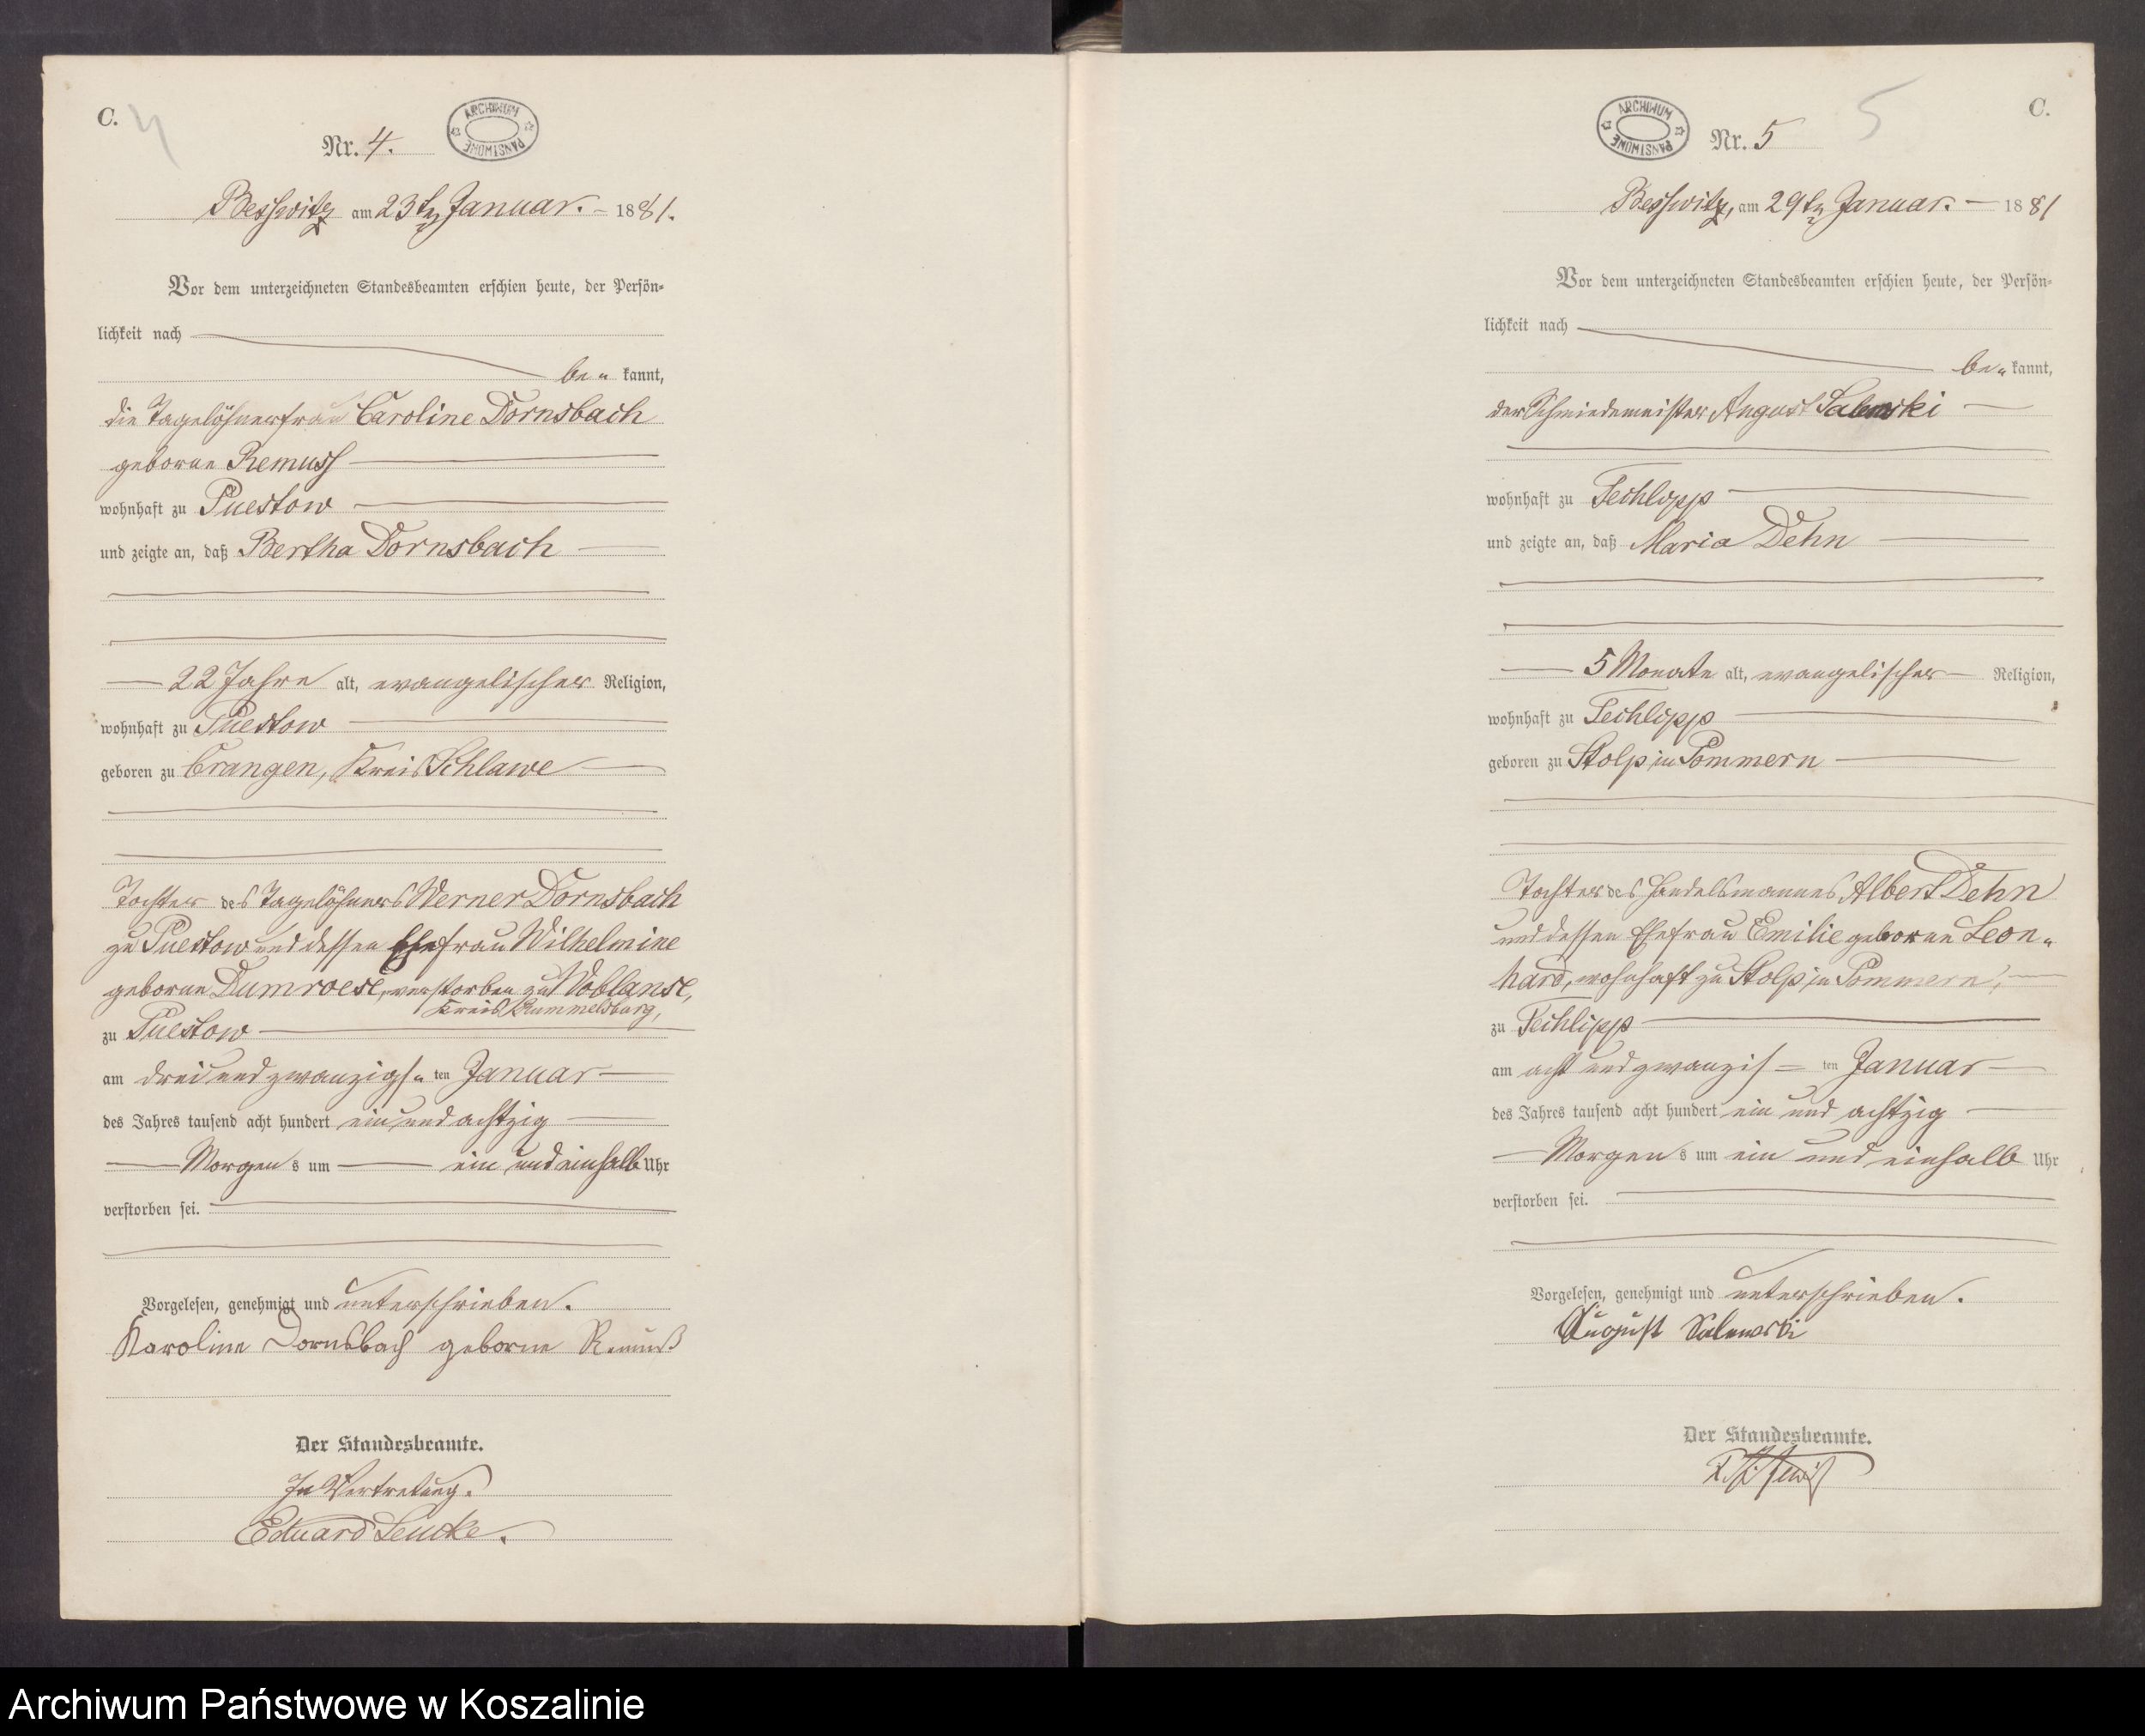 C.
4
Nr. 4.
ARCHIWUM PAŃSTWOWE
Besswitz am 23ten Januar. 1881.
Vor dem unterzeichneten Standesbeamten erschien heute, der Persön-
lichkeit nach
be- kannt,
die Tagelöhnerfrau Caroline Dornsbach
geborne Remuss
wohnhaft zu Puestow
und zeigte an, daß Bertha Dornsbach
22 Jahre alt, evangelischer Religion,
wohnhaft zu Puestow
geboren zu Crangen, Kreis Schlawe
Tochter des Tagelöhners Werner Dornsbach
zu Puestow und dessen Ehefrau Wilhelmine
geborne Dumroese, verstorben zu Woblanse,
Kreis Rummelsburg,
zu Puestow
am drei und zwanzigs- ten Januar
des Jahres tausend acht hundert ein und achtzig
Morgens um ein und einhalb Uhr
verstorben sei.
Vorgelesen, genehmigt und unterschrieben.
Karoline Dornsbach geborne Remuß
Der Standesbeamte.
In Vertretung.
Eduard Lemke.
C.
5
Nr. 5
ARCHIWUM PAŃSTWOWE
Besswitz, am 29ten Januar. 1881
Vor dem unterzeichneten Standesbeamten erschien heute, der Persön-
lichkeit nach
be- kannt,
der Schmiedemeister August Salewski
wohnhaft zu Techlipp
und zeigte an, daß Maria Dehn
5 Monate alt, evangelischer Religion,
wohnhaft zu Techlipp
geboren zu Stolp in Pommern
Tochter des Handelsmannes Albert Dehn
und dessen Ehefrau Emilie geborne Leon-
hard, wohnhaft zu Stolp in Pommern,
zu Techlipp
am acht und zwanzigs- ten Januar
des Jahres tausend acht hundert ein und achtzig
Morgens um ein und einhalb Uhr
verstorben sei.
Vorgelesen, genehmigt und unterschrieben.
August Salewski
Der Standesbeamte.
Archiwum Państwowe w Koszalinie